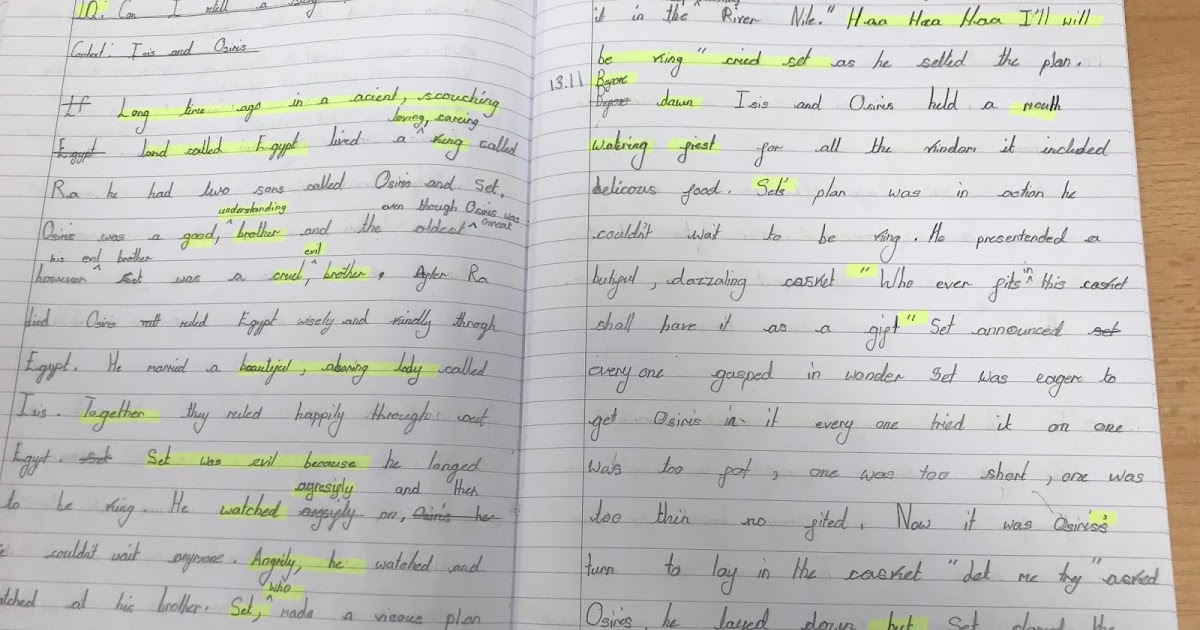 IQ: Can I retell a
Context: Isis and Osiris
If Long time ago in a acient, scouching
loving, careing
Egypt land called Egypt lived a ^ king called
Ra he had two sons called Osiris and Set,
understanding even though Osiris was
Osiris was a good, ^ brother and the oldest ^ Great
his evil brother evil
however ^ Set was a cruel, ^ brother. After Ra
died Osiris ruled Egypt wisely and kindly throgh
Egypt. He married a beautejul, aboring lady called
Isis. Together they ruled happily throught out
Egypt. Set Set was evil because he longed
agresigly and then
to be king. He watched angsigly on, Osiris her
couldn't wait anymore. Angrily, he watched and
who
watched at his brother. Set, ^ made a vicous plan
it in the River Nile." Haa Haa Haa I'll will
be king" cried set as he selled the plan.
13.11 Before
Before dawn Isis and Osiris held a mouth
watering fiest for all the kindom it included
delicous food. Set's plan was in action he
couldn't wait to be king. He presentended a
butiful, dazzaling casket "Who ever fits ^ in this casket
shall have it as a gift" Set announced set
every one gasped in wonder Set was eager to
get Osiris in it every one tried it on one
was too fat, one was too short, one was
too thin no fited. Now it was Osiris's
turn to lay in the casket "let me try" asked
Osiris, he layed down but Set slamed the